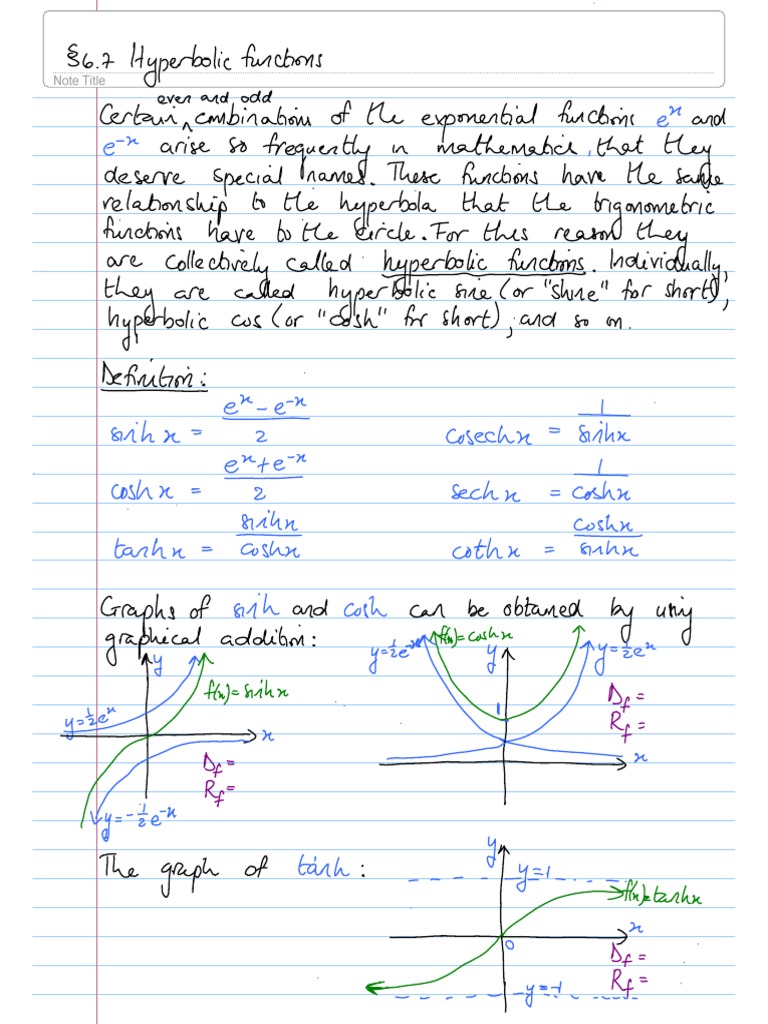 §6.7 Hyperbolic functions
Note Title
even and odd
Certain ^ combinations of the exponential functions eˣ and
e⁻ˣ arise so frequently in mathematics, that they
deserve special names. These functions have the same
relationship to the hyperbola that the trigonometric
functions have to the circle. For this reason they
are collectively called hyperbolic functions. Individually,
they are called hyperbolic sine (or "shine" for short),
hyperbolic cos (or "cosh" for short), and so on.
Definition:
sinh x = (eˣ - e⁻ˣ)/2 cosech x = 1/sinh x
cosh x = (eˣ + e⁻ˣ)/2 sech x = 1/cosh x
tanh x = sinh x/cosh x coth x = cosh x/sinh x
Graphs of sinh and cosh can be obtained by using
graphical addition:
y
f(x)=sinh x
y=½eˣ
x
D_f =
R_f =
y=-½e⁻ˣ
y=½e⁻ˣ
f(x)=cosh x
y
y=½eˣ
1
D_f =
R_f =
x
The graph of tanh:
y
y=1
f(x)=tanh x
x
0
D_f =
R_f =
y=-1